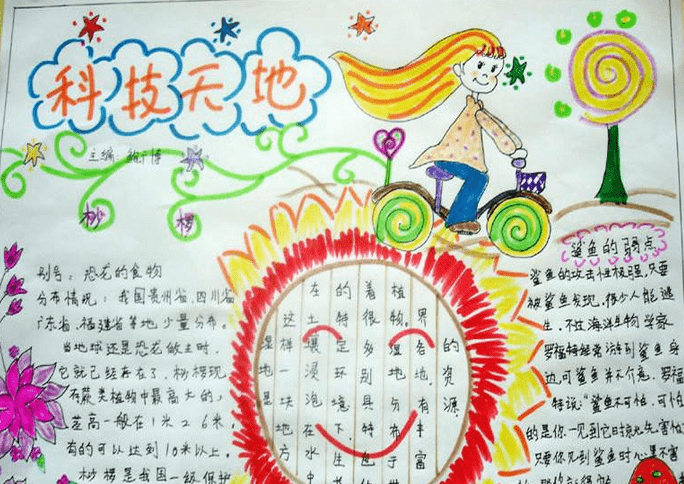 科技天地
主编:
桫椤
别号:恐龙的食物
分布情况:我国贵州省,四川省
广东省、福建省等地少量分布。
当地球还是恐龙做主时,
它就已经存在了,桫椤现
存蕨类植物中最高大的,
茎高一般在1米26米,
有的可以达到10米以上。
桫椤是我国一级保护
湿地是
这样一块地方
在土壤浸泡在水中
的特定环境下生
着很多别具特色
植物,湿地分布于
界各地,有丰富
的资源
鲨鱼的弱点
鲨鱼的攻击性极强,只要
被鲨鱼发现,很少人能逃
生,不过海洋生物学家
罗福特经常游到鲨鱼身
边,可鲨鱼并不介意,罗福
特说:"鲨鱼不可怕,可怕
的是你一见到它时就先害怕
只要你见到鲨鱼时心里不害
那你就很